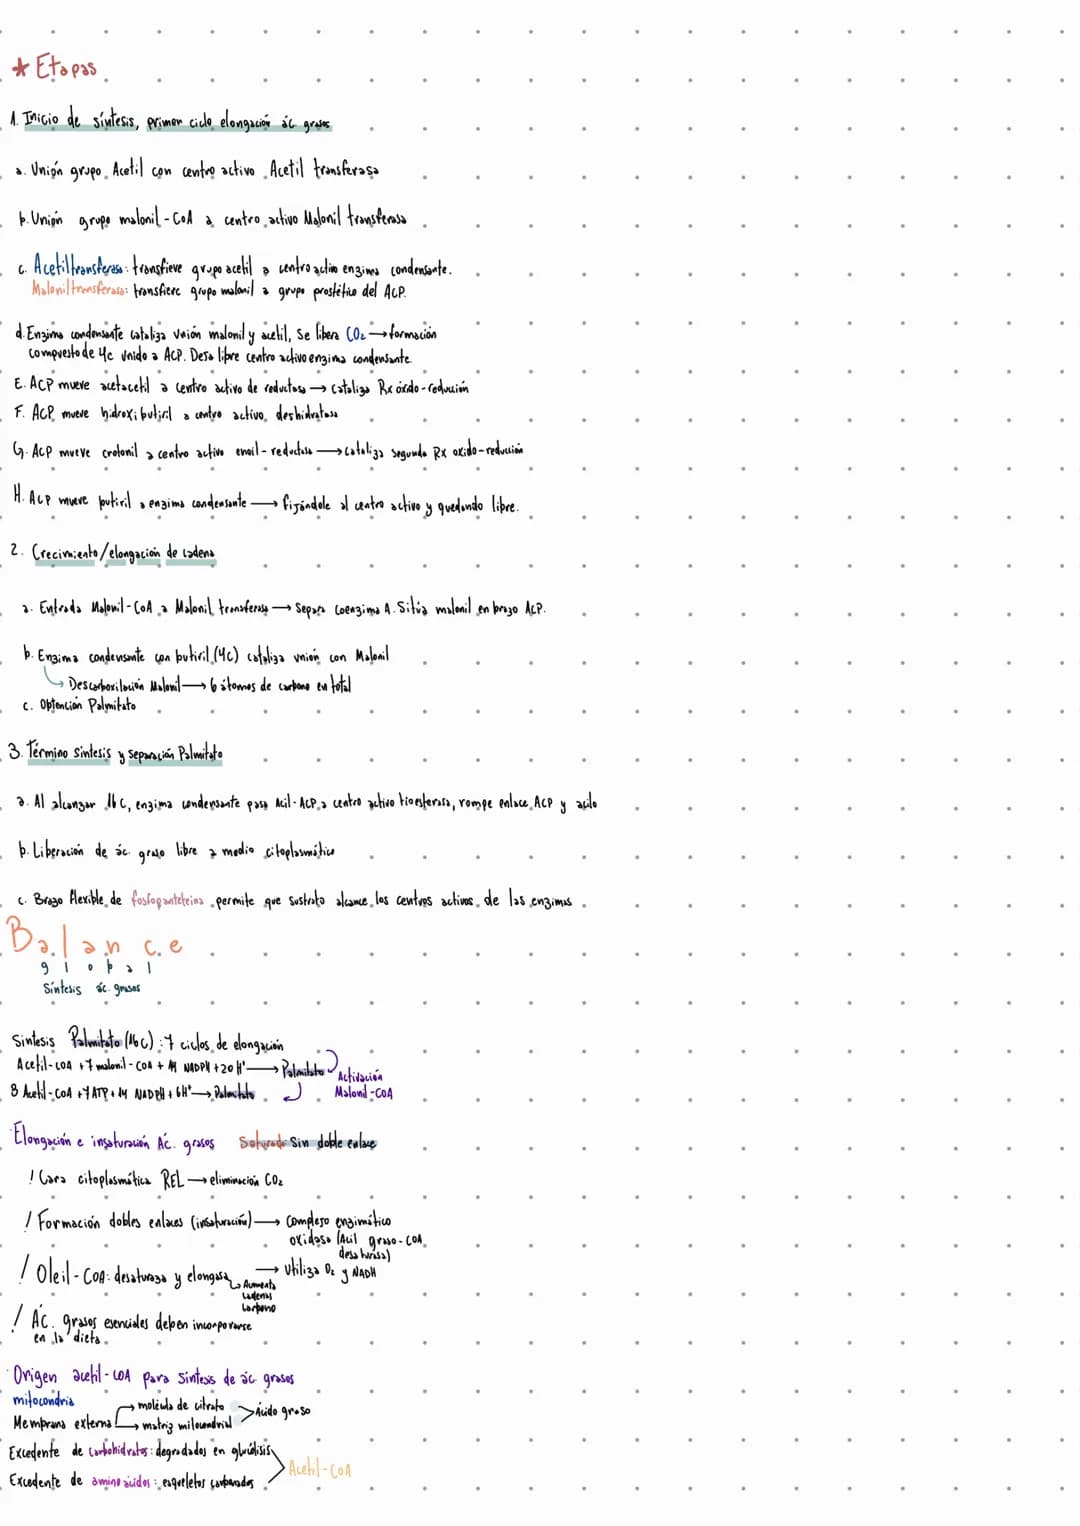 * Etapas.
1. Inicio de síntesis, primer ciclo elongación ác grasos
a. Unión grupo Acetil con centro activo Acetil transferasa
b. Unión grupo malonil-CoA a centro activo Malonil transferasa
c. Acetiltransferasa: transfieve grupo acetil a centro activo enzima condensante.
Maloniltransferasa: transfiere grupo malonil a grupo prostético del ACP.
d. Enzima condensante cataliza unión malonil y acetil, se libera CO2 → formación
compuesto de 4c unido a ACP. Deja libre centro activo enzima condensante.
E. ACP mueve acetacetil a centro activo de reductasa → cataliza Rx óxido-reducción
F. ACP mueve hidroxibutiril a centro activo deshidratasa
G. ACP mueve crotonil a centro activo enoil-reductasa → cataliza segunda Rx oxido-reducción
H. ACP mueve butiril a enzima condensante → fijándole al centro activo y quedando libre.
2. Crecimiento/elongación de cadena
a. Entrada Malonil-CoA a Malonil transferasa → Separa coenzima A. Sitúa malonil en brazo ACP.
b. Enzima condensante con butiril (4C) cataliza unión con Malonil
↳ Descarboxilación Malonil → 6 átomos de carbono en total
c. Obtención Palmitato
3. Término síntesis y separación Palmitato
a. Al alcanzar 16 C, enzima condensante pasa Acil-ACP a centro activo tioesterasa, rompe enlace ACP y acilo
b. Liberación de ác. graso libre a medio citoplasmático
c. Brazo flexible de fosfopanteteína permite que sustrato alcance los centros activos de las enzimas.
Balance
global
Síntesis ác. grasos
Síntesis Palmitato (16c): 7 ciclos de elongación
Acetil-COA + 7 malonil-COA + 14 NADPH + 20 H+ → Palmitato
Activación
8 Acetil-COA + 7 ATP + 14 NADPH + 6H+ → Palmitato
Malonil-COA
Elongación e insaturación Ác. grasos Saturado: Sin doble enlace
! Cara citoplasmática REL → eliminación CO2
! Formación dobles enlaces (insaturación) → Complejo enzimático
oxidasa (Acil graso-COA
desaturasa)
! Oleil-COA: desaturasa y elongasa → Utiliza O2 y NADH
↳ Aumenta
cadenas
carbono
! Ác. grasos esenciales deben incorporarse
en la dieta.
Origen acetil-COA para síntesis de ác grasos
mitocondria
Membrana externa → molécula de citrato > Ácido graso
→ matriz mitocondrial
Excedente de carbohidratos: degradados en glucólisis
> Acetil-COA
Excedente de aminoácidos: esqueletos carbonados